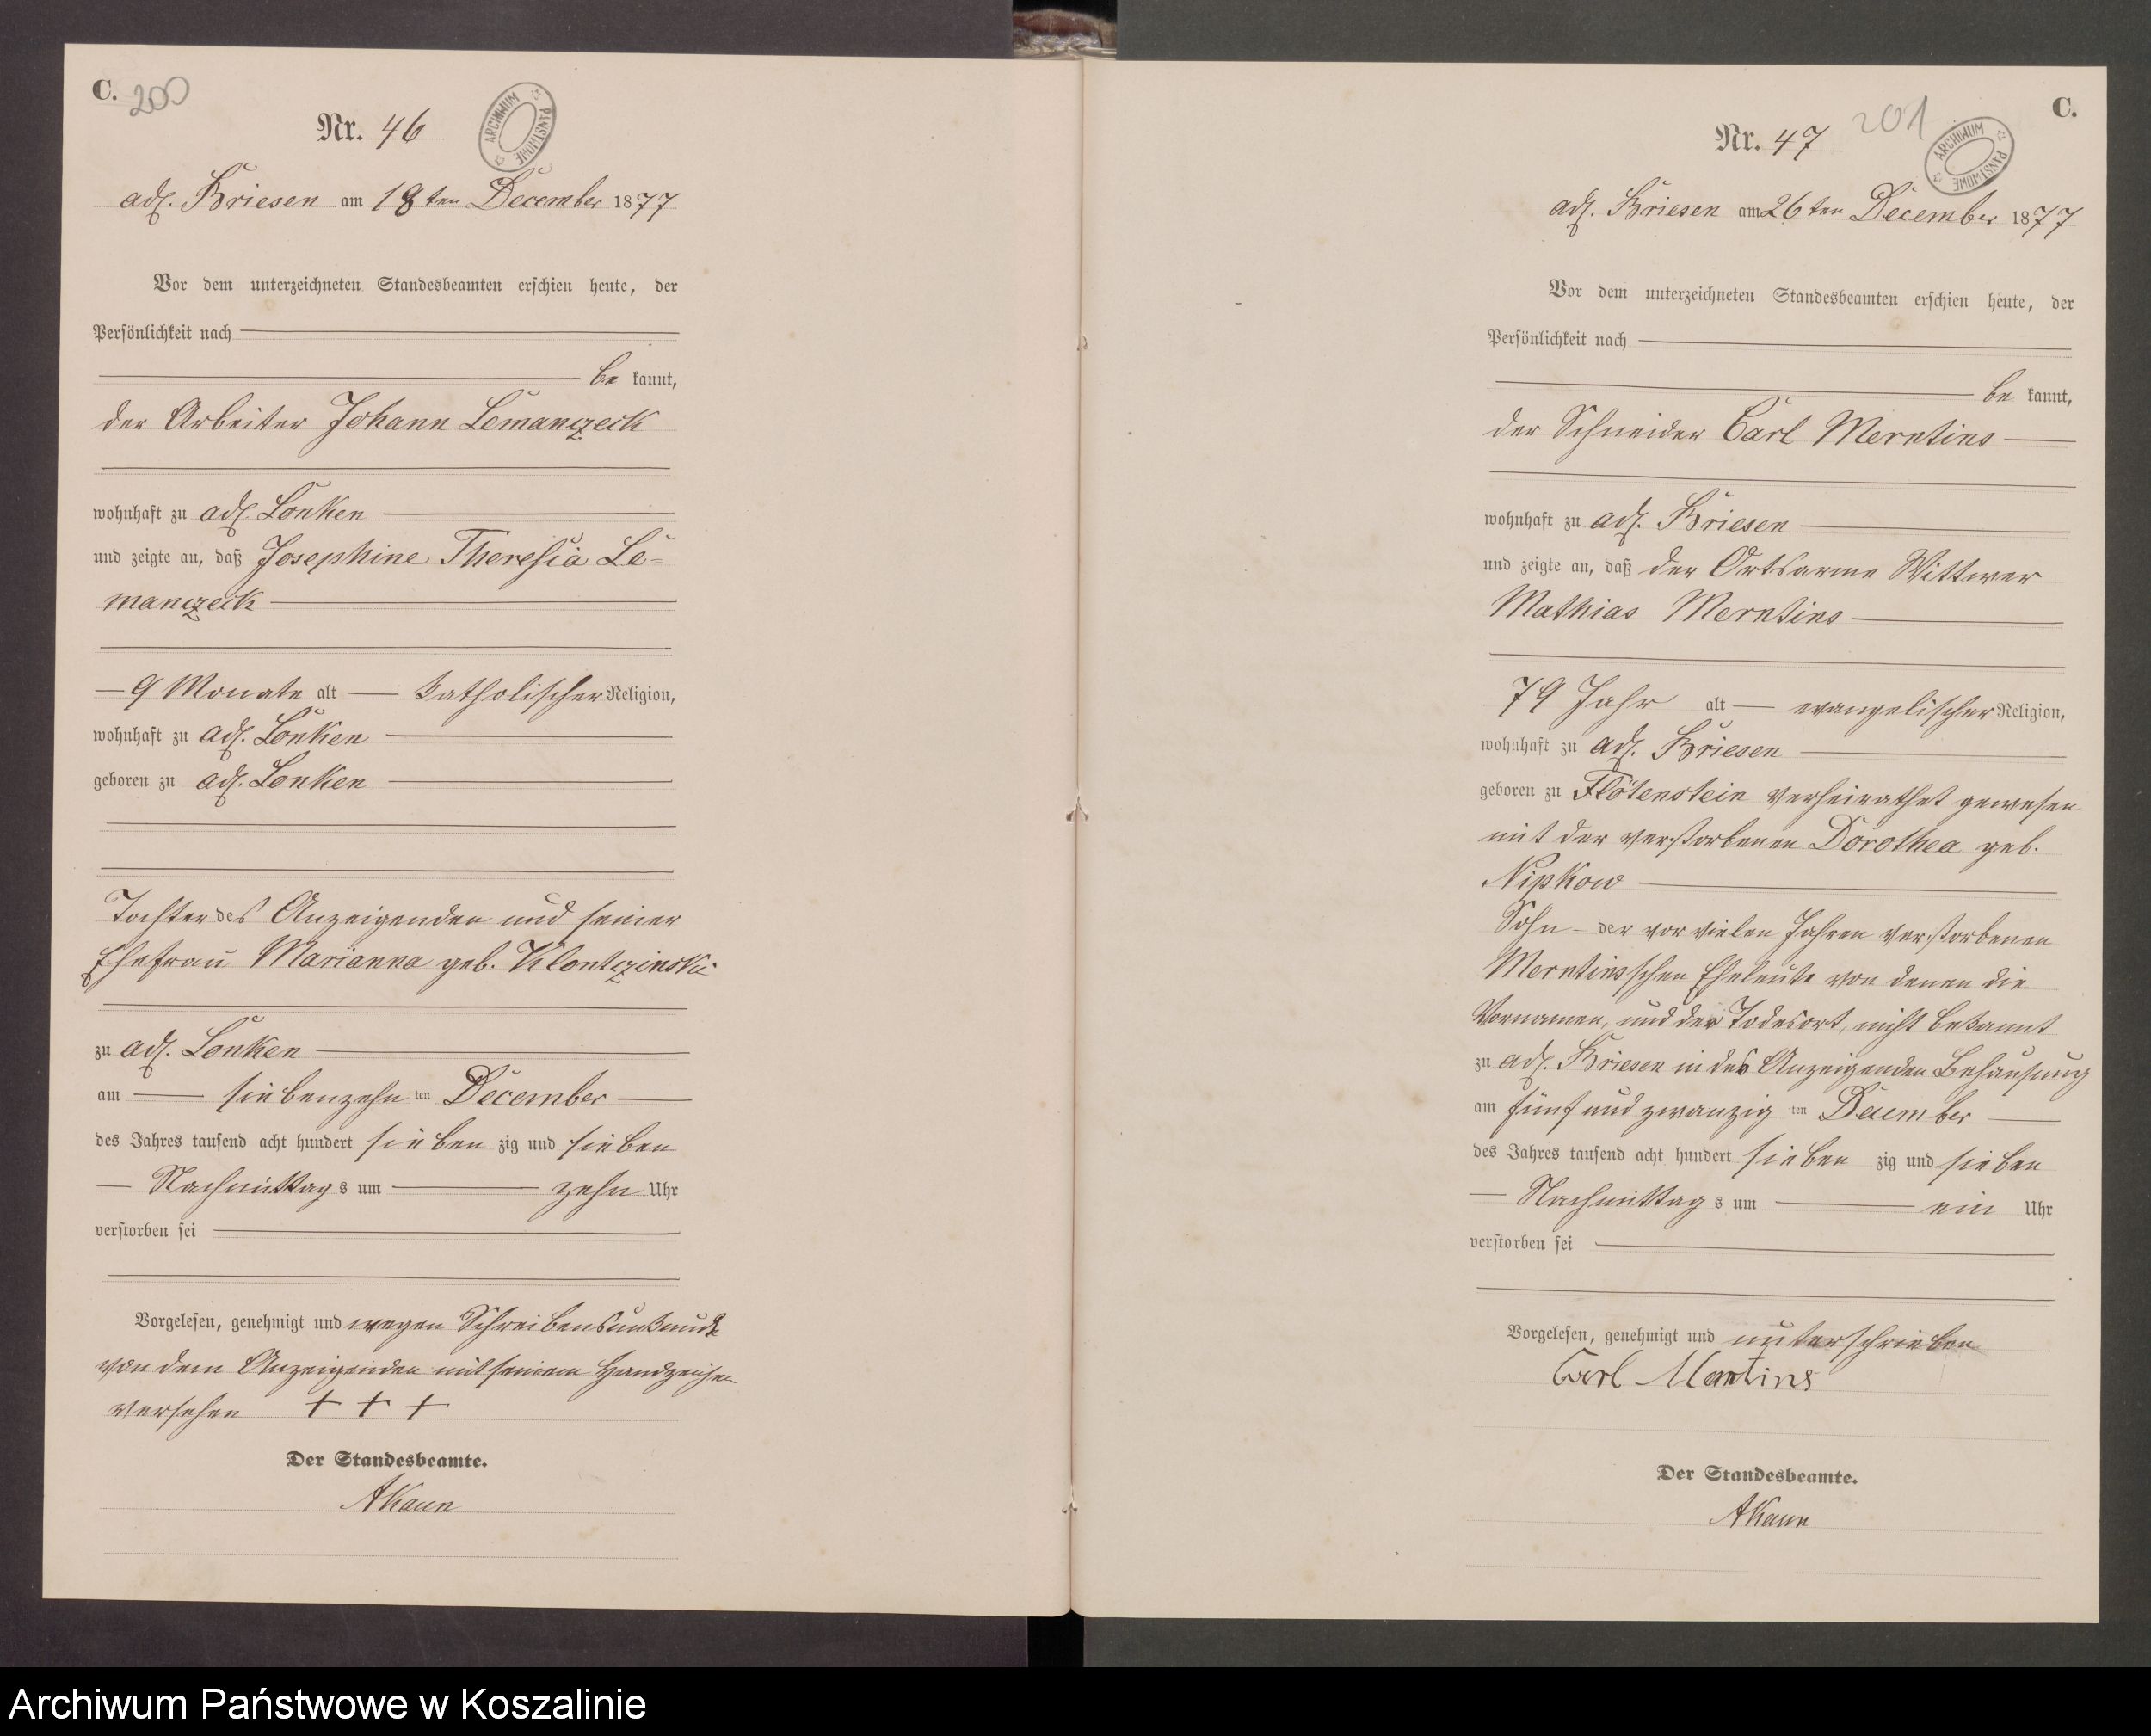 C. 200
Nr. 46
ARCHIWUM PAŃSTWOWE
adl. Briesen am 18ten December 1877
Vor dem unterzeichneten Standesbeamten erschien heute, der
Persönlichkeit nach
be kannt,
der Arbeiter Johann Lemanczeck
wohnhaft zu adl. Lonken
und zeigte an, daß Josephine Theresia Le=
manczeck
9 Monate alt katholischer Religion,
wohnhaft zu adl. Lonken
geboren zu adl. Lonken
Tochter des Anzeigenden und seiner
Ehefrau Marianna geb. Klontczinski
zu adl. Lonken
am siebenzehn ten December
des Jahres tausend acht hundert sieben zig und sieben
Nachmittags um zehn Uhr
verstorben sei
Vorgelesen, genehmigt und wegen Schreibensunkunde
von dem Anzeigenden mit seinem Handzeichen
versehen + + +
Der Standesbeamte.
C.
201
Nr. 47
ARCHIWUM PAŃSTWOWE
adl. Briesen am 26ten December 1877
Vor dem unterzeichneten Standesbeamten erschien heute, der
Persönlichkeit nach
be kannt,
der Schneider Carl Merntins
wohnhaft zu adl. Briesen
und zeigte an, daß der Ortsarme Wittwer
Mathias Merntins
79 Jahr alt evangelischer Religion,
wohnhaft zu adl. Briesen
geboren zu Flötenstein verheirathet gewesen
mit der verstorbenen Dorothea geb.
Nipkow
Sohn der vor vielen Jahren verstorbenen
Merntinsschen Eheleute von denen die
Vornamen, und der Todesort, nicht bekannt
zu adl. Briesen in des Anzeigenden Behausung
am fünf und zwanzig ten December
des Jahres tausend acht hundert sieben zig und sieben
Nachmittags um ein Uhr
verstorben sei
Vorgelesen, genehmigt und unterschrieben
Carl Merntins
Der Standesbeamte.
Archiwum Państwowe w Koszalinie